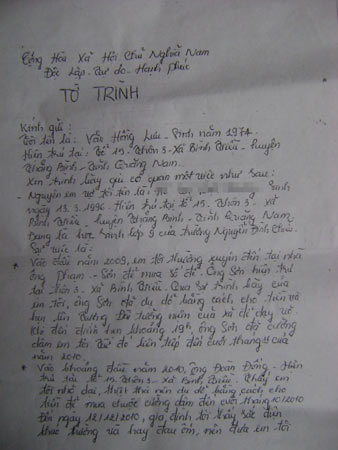 Cộng Hòa Xã Hội Chủ Nghĩa Nam
Độc Lập - Tự do - Hạnh phúc
TỜ TRÌNH
Kính gửi :
Tôi tên là : Văn Hồng Lưu - Sinh năm 1974.
Hiện trú tại : tổ 15 - thôn 3 - Xã Bình Triều - huyện
Thăng Bình - Tỉnh Quảng Nam.
Xin trình bày quí cơ quan một việc như sau :
Nguyên em vợ tôi tên là : Sinh
ngày 13.3.1996. Hiện trú tại tổ 15 thôn 3 - xã
Bình Triều - huyện Thăng Bình - Tỉnh Quảng Nam
Đang là học sinh lớp 9 của trường Nguyễn Đình Chiểu.
Sự việc là :
Vào đầu năm 2009, em tôi thường xuyên đến tại nhà
ông Phạm - Sơn để mua số đề. Ông Sơn hiện trú
tại thôn 3 - Xã Bình Triều. Qua sự trình bày của
em tôi, ông Sơn dụ dỗ bằng cách, cho tiền và
hẹn lên
Khi đến khoảng 19h, ông Sơn
dâm em tôi. Sự đó liên tiếp đến cuối tháng
năm 2010.
Vào khoảng đầu năm 2010, ông Đoàn Đống - Hiện
trú tại tổ 15 thôn 3 - xã Bình Triều. Thấy em
tôi nhỏ dại, thật thà nên dụ dỗ bằng cách cho
tiền để mua chuộc cưỡng dâm đến cuối tháng 10/2010
Đến ngày 12/12/2010, gia đình tôi thấy sức diện
khác thường và hay đau ốm, nên đưa em tôi